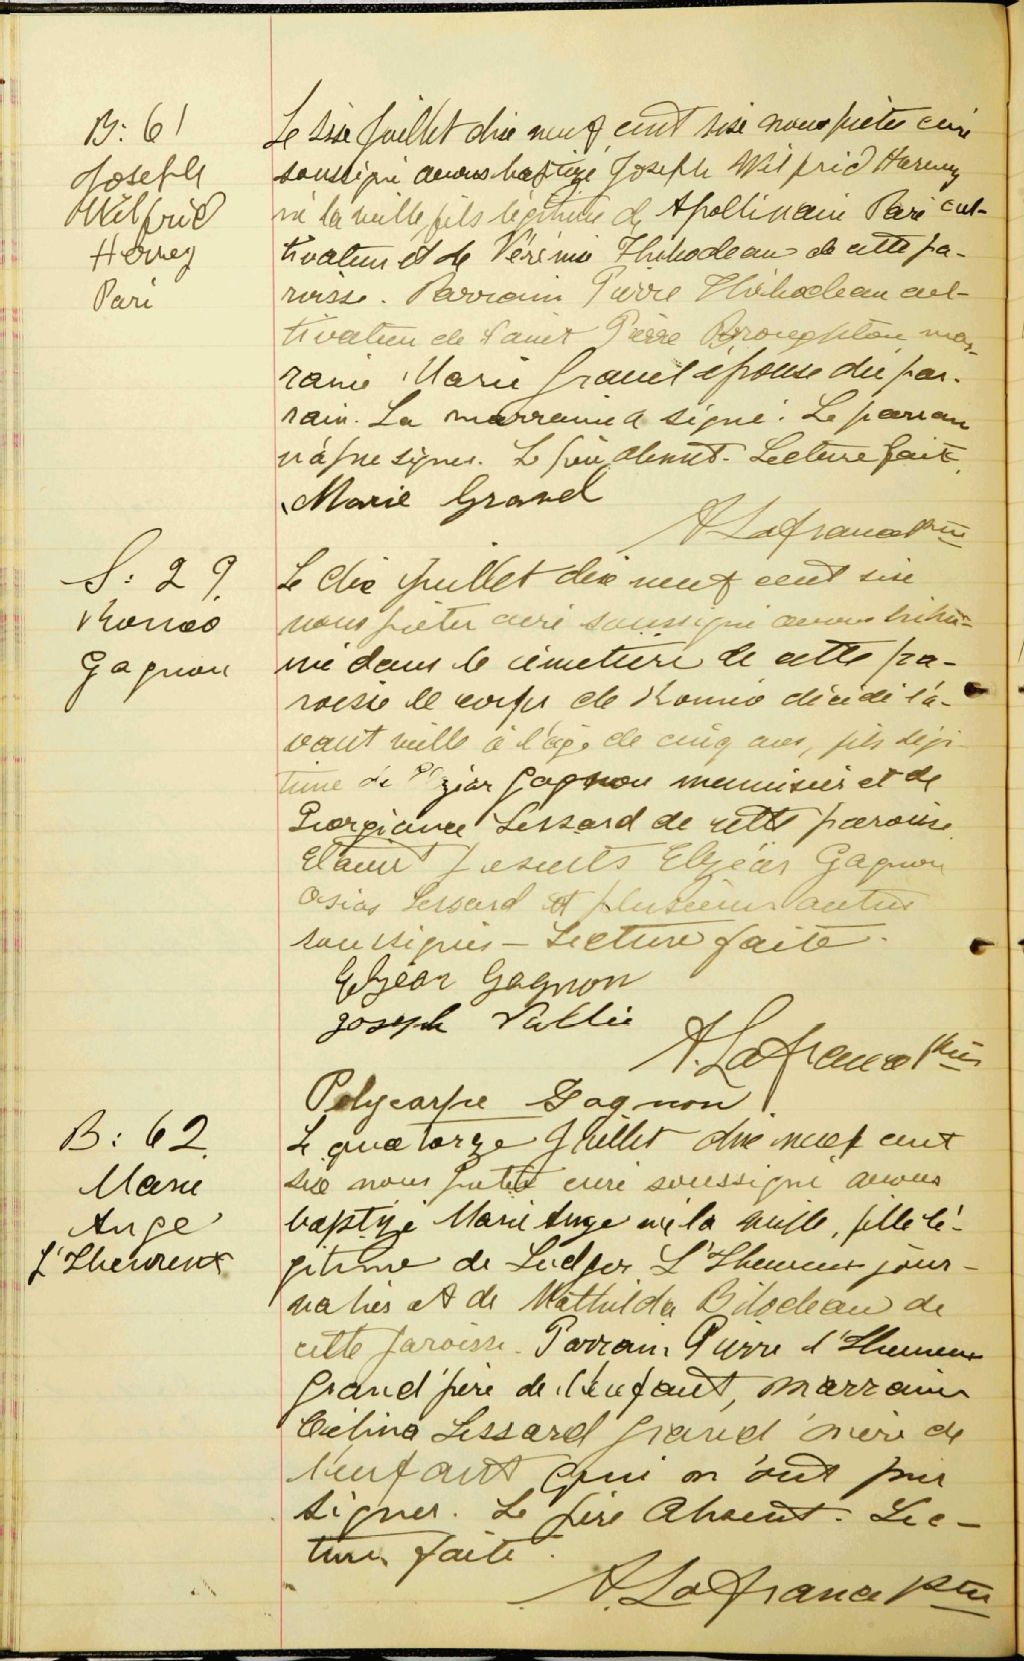 B: 61
Joseph
Wilfrid
Hervey
Paré
Le six juillet dix neuf cent six nous prêtre curé
soussigné avons baptizé Joseph Wilfrid Harvey
né la veille, fils légitime d'Apollinaire Paré cul-
tivateur et de Thibodeau de cette pa-
roisse. Parrain Pierre Thibodeau cul-
tivateur de Saint Pierre Broughton mar-
raine Marie Gravel épouse du par-
rain. La marraine a signé. Le parrain
n'a pu signer. Le père absent. Lecture faite.
Marie Gravel
A Lafrance Ptre
S: 29
Roméo
Gagnon
Le dix juillet dix neuf cent six
nous prêtre curé soussigné avons inhu-
mé dans le cimetière de cette pa-
roisse le corps de Roméo décédé l'a-
vant veille à l'âge de cinq ans, fils légi-
time de Gagnon menuisier et de
Georgianna Lessard de cette paroisse.
Etaient présents Elzéar Gagnon
Osias Lessard et plusieurs autres
soussignés – Lecture faite.
Elzéar Gagnon
Joseph Vallée
A. Lafrance Ptre
Polycarpe Gagnon
B: 62
Marie
Ange
L'Heureux
Le quatorze Juillet dix neuf cent
six nous prêtre curé soussigné avons
baptizé Marie Ange née la veille, fille lé-
gitime de Ludger L'Heureux jour-
nalier et de Mathilda Bilodeau de
cette paroisse. Parrain Pierre L'Heureux
grand'père de l'enfant, marraine
Célina Lessard grand'mère de
l'enfant qui n'ont pu
signer. Le père absent. Lec-
ture faite.
A. Lafrance Ptre